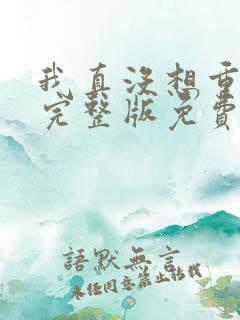 我真没想重
完整版免费
語默無言
未经同意禁止搭载